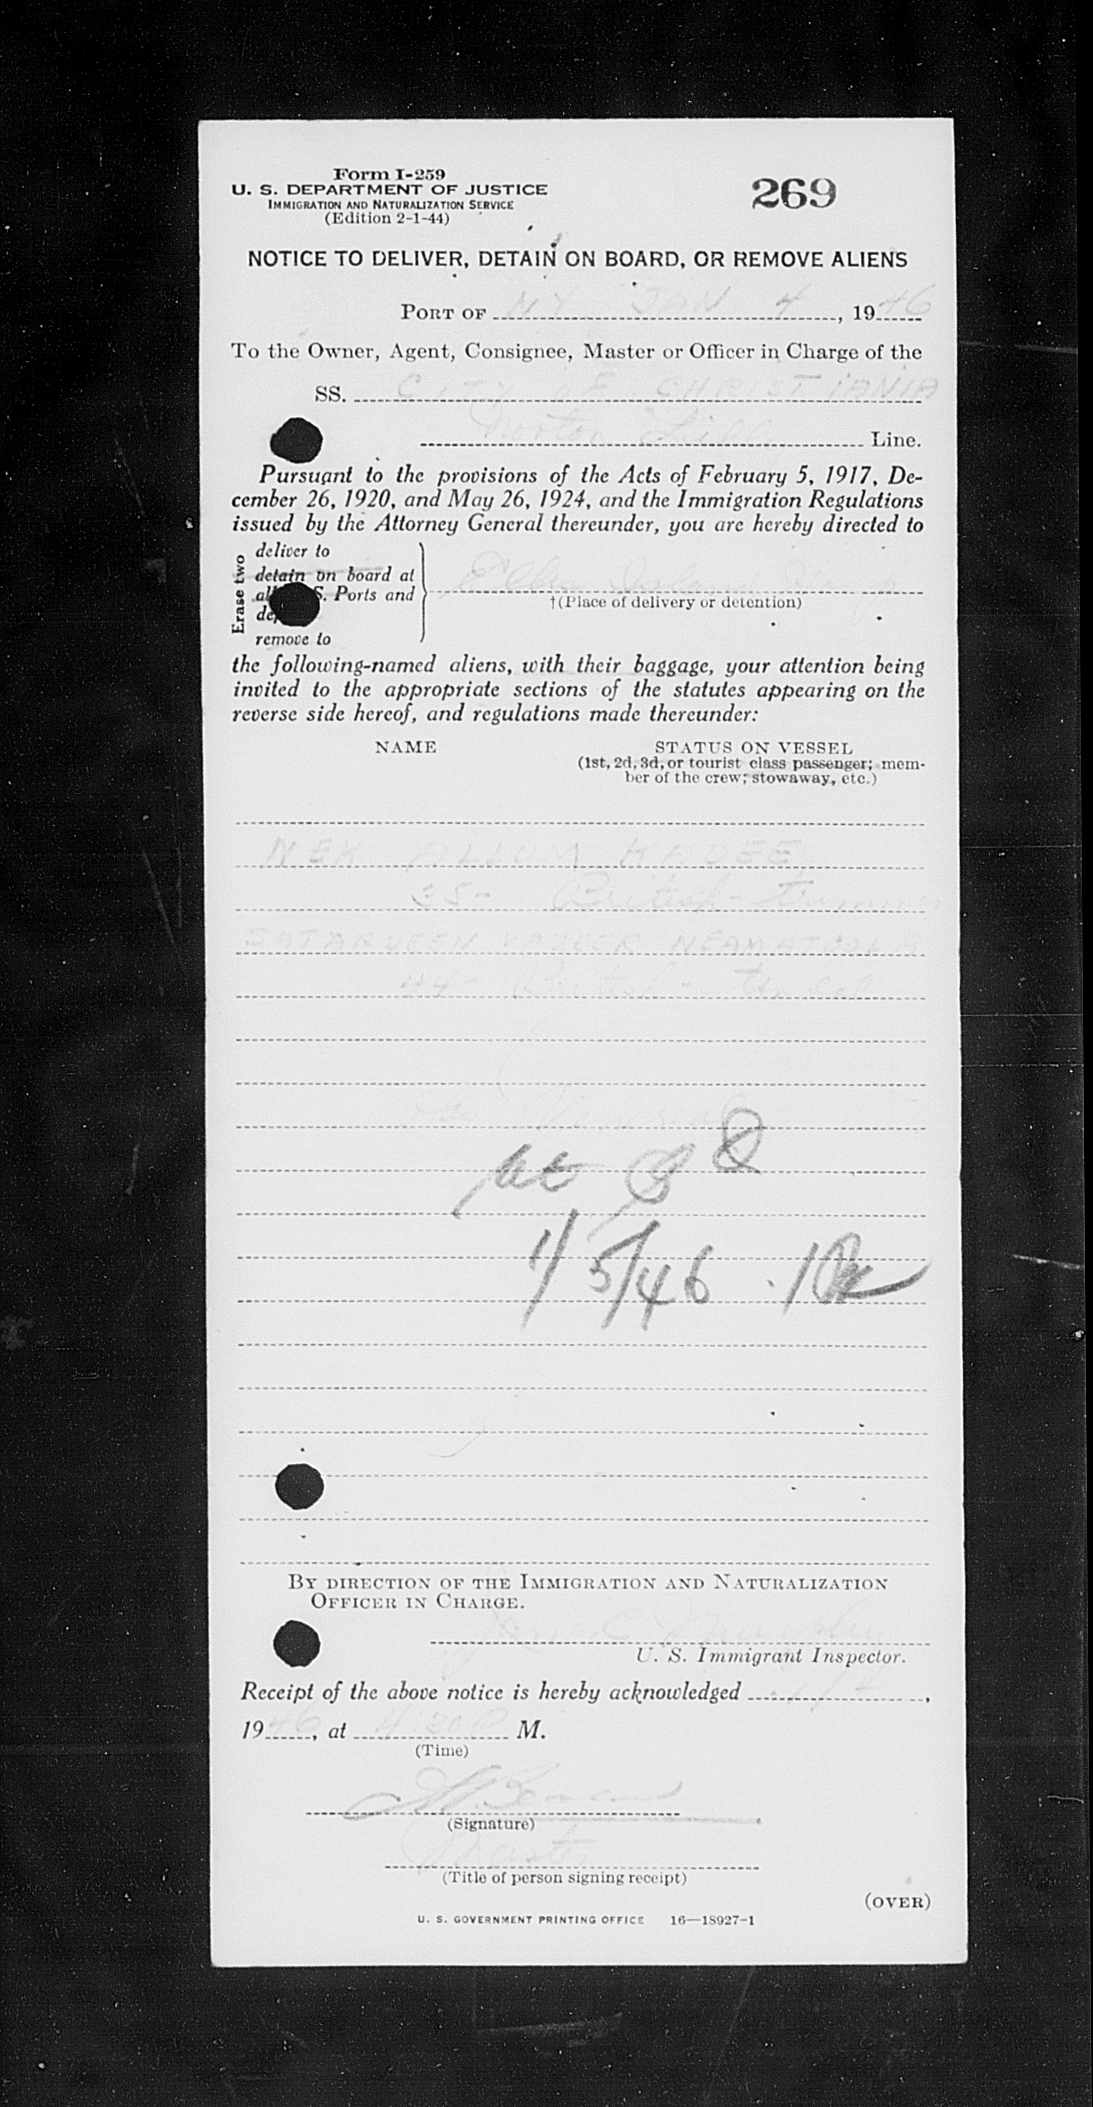 Form I-259
U. S. DEPARTMENT OF JUSTICE
IMMIGRATION AND NATURALIZATION SERVICE
(Edition 2-1-44)
269
NOTICE TO DELIVER, DETAIN ON BOARD, OR REMOVE ALIENS
PORT OF NY JAN 4, 1946
To the Owner, Agent, Consignee, Master or Officer in Charge of the
SS. CITY OF CHRISTIANIA
Norton Lilly Line.
Pursuant to the provisions of the Acts of February 5, 1917, De-
cember 26, 1920, and May 26, 1924, and the Immigration Regulations
issued by the Attorney General thereunder, you are hereby directed to
Erase two
deliver to
detain on board at
S. Ports and
remove to
Ellis Island
†(Place of delivery or detention)
the following-named aliens, with their baggage, your attention being
invited to the appropriate sections of the statutes appearing on the
reverse side hereof, and regulations made thereunder:
NAME
STATUS ON VESSEL
(1st, 2d, 3d, or tourist class passenger; mem-
ber of the crew; stowaway, etc.)
NEK ALLUM
35- British - Trimmer
NEAMATOOLA
44- British -
at
1/5/46
BY DIRECTION OF THE IMMIGRATION AND NATURALIZATION
OFFICER IN CHARGE.
U. S. Immigrant Inspector.
Receipt of the above notice is hereby acknowledged 1/4,
1946, at 4:30 P M.
(Time)
(Signature)
Master
(Title of person signing receipt)
(OVER)
U. S. GOVERNMENT PRINTING OFFICE 16—18927-1